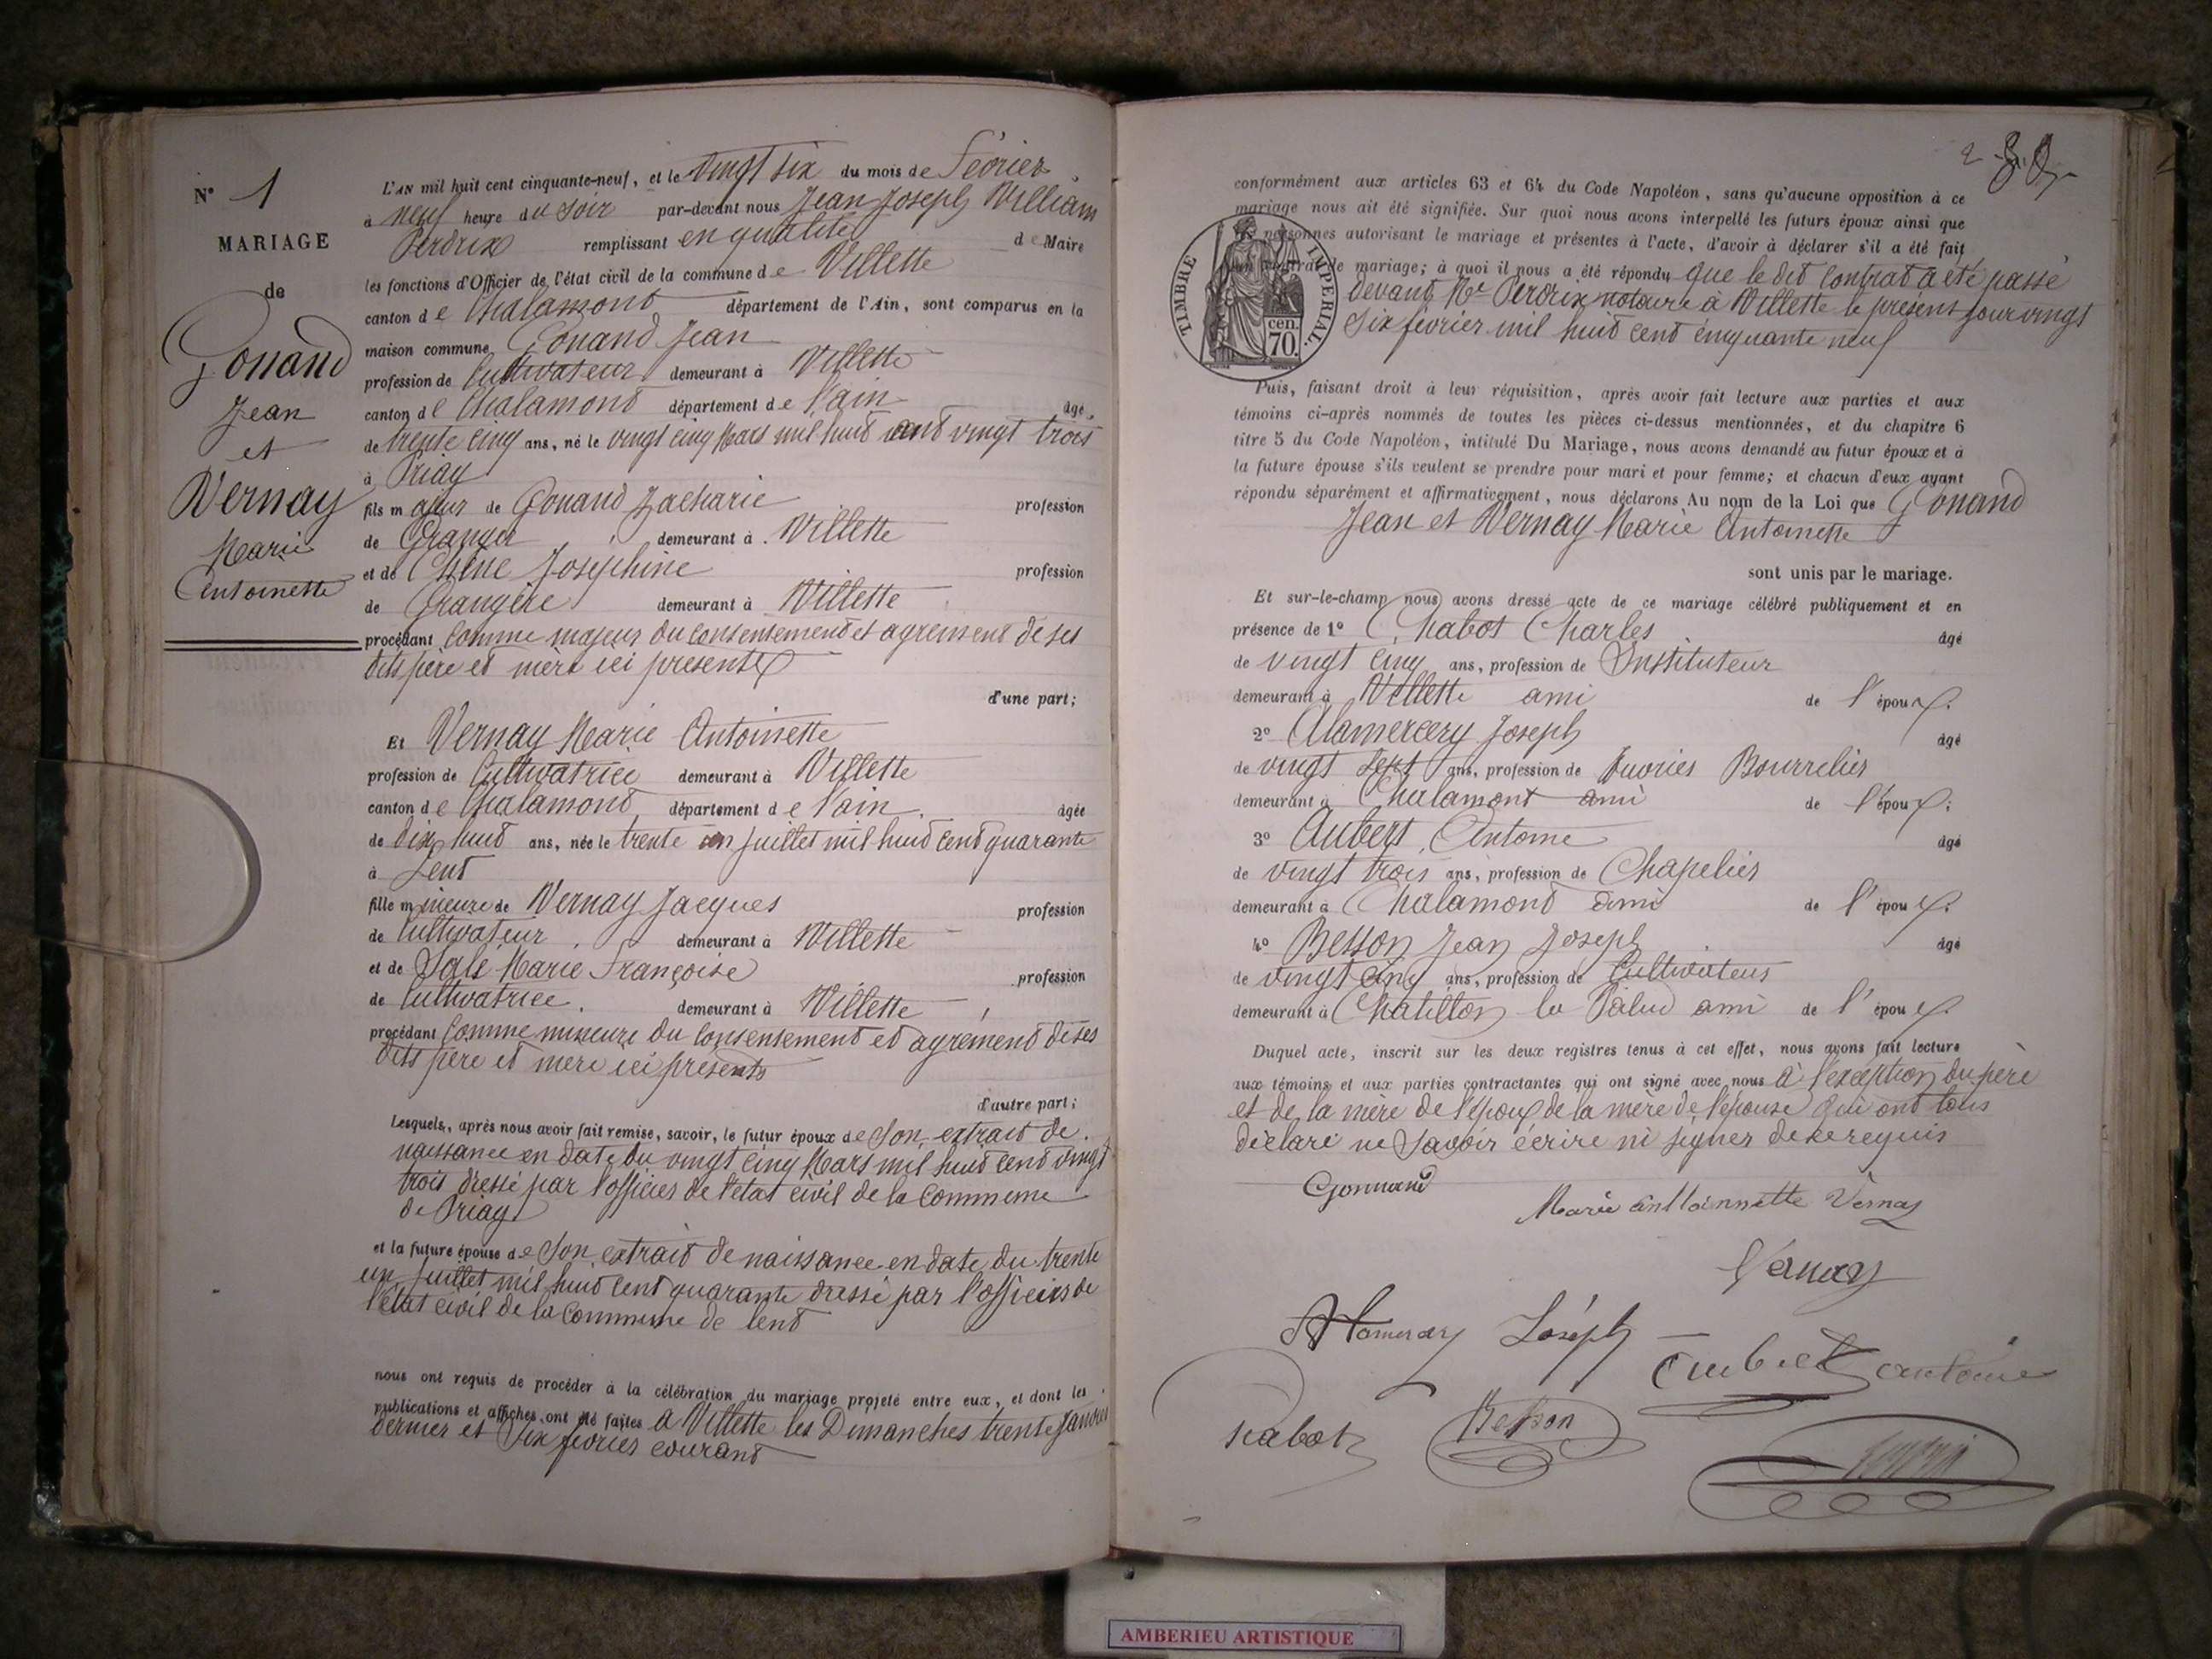 N° 1
MARIAGE
de
Gonand
Jean
et
Vernay
Marie
Antoinette
L'AN mil huit cent cinquante-neuf, et le vingt six du mois de février
à neuf heure du soir par-devant nous Jean Joseph William
Perdrix remplissant en qualité de Maire
les fonctions d'Officier de l'état civil de la commune de Villette
canton de Chalamont département de l'Ain, sont comparus en la
maison commune Gonand Jean
profession de Cultivateur demeurant à Villette
canton de Chalamont département de l'ain âgé
de trente cinq ans, né le vingt cinq Mars mil huit cent vingt trois
à Priay
fils majeur de Gonand Zacharie profession
de Granger demeurant à Villette
et de Chêne Josephine profession
de Grangère demeurant à Villette
procédant comme majeur du consentement et agrement de ses
dits père et mère ici presents
d'une part;
Et Vernay Marie Antoinette
profession de Cultivatrice demeurant à Villette
canton de Chalamont département de l'ain âgée
de dix huit ans, née le trente un juillet mil huit cent quarante
à Lent
fille mineure de Vernay Jacques profession
de Cultivateur demeurant à Villette
et de Salé Marie Françoise profession
de Cultivatrice demeurant à Villette
procédant comme mineure du consentement et agrément de ses
dits père et mère ici présents
d'autre part;
Lesquels, après nous avoir fait remise, savoir, le futur époux de son extrait de
naissance en date du vingt cinq Mars mil huit cent vingt
trois dressé par l'officier de l'état civil de la Commune
de Priay
et la future épouse de son extrait de naissance en date du trente
un juillet mil huit cent quarante dressé par l'officier de
l'état civil de la Commune de lent
nous ont requis de procéder à la célébration du mariage projeté entre eux, et dont les
publications et affiches ont été faites à Villette les Dimanches trente janvier
dernier et six février courant
2
conformément aux articles 63 et 64 du Code Napoléon, sans qu'aucune opposition à ce
mariage nous ait été signifiée. Sur quoi nous avons interpellé les futurs époux ainsi que
les personnes autorisant le mariage et présentes à l'acte, d'avoir à déclarer s'il a été fait
un contrat de mariage; à quoi il nous a été répondu que le dit contrat a été passé
devant Me Perdrix notaire à Villette le présent jour vingt
six février mil huit cent cinquante neuf
TIMBRE IMPERIAL.
70 cen.
Puis, faisant droit à leur réquisition, après avoir fait lecture aux parties et aux
témoins ci-après nommés de toutes les pièces ci-dessus mentionnées, et du chapitre 6
titre 5 du Code Napoléon, intitulé Du Mariage, nous avons demandé au futur époux et à
la future épouse s'ils veulent se prendre pour mari et pour femme; et chacun d'eux ayant
répondu séparément et affirmativement, nous déclarons Au nom de la Loi que Gonand
Jean et Vernay Marie Antoinette
sont unis par le mariage.
Et sur-le-champ nous avons dressé acte de ce mariage célébré publiquement et en
présence de 1° Chabot Charles âgé
de vingt cinq ans, profession de Instituteur
demeurant à Villette ami de l'époux.
2° Alamercery Joseph âgé
de vingt sept ans, profession de Ouvrier Bourrelier
demeurant à Chalamont ami de l'époux;
3° Aubert Antoine âgé
de vingt trois ans, profession de Chapelier
demeurant à Chalamont ami de l'époux.
4° Besson Jean Joseph âgé
de vingt cinq ans, profession de Cultivateur
demeurant à Chatillon la Palud ami de l'époux.
Duquel acte, inscrit sur les deux registres tenus à cet effet, nous avons fait lecture
aux témoins et aux parties contractantes qui ont signé avec nous à l'exception du père
et de la mère de l'époux de la mère de l'épouse qui ont tous
déclaré ne savoir écrire ni signer de ce requis
Gonnand
Marie anttoinnette Vernay
Vernay
Alamercery Joseph
Aubert antoine
Chabot
Besson
Perdrix
AMBERIEU ARTISTIQUE